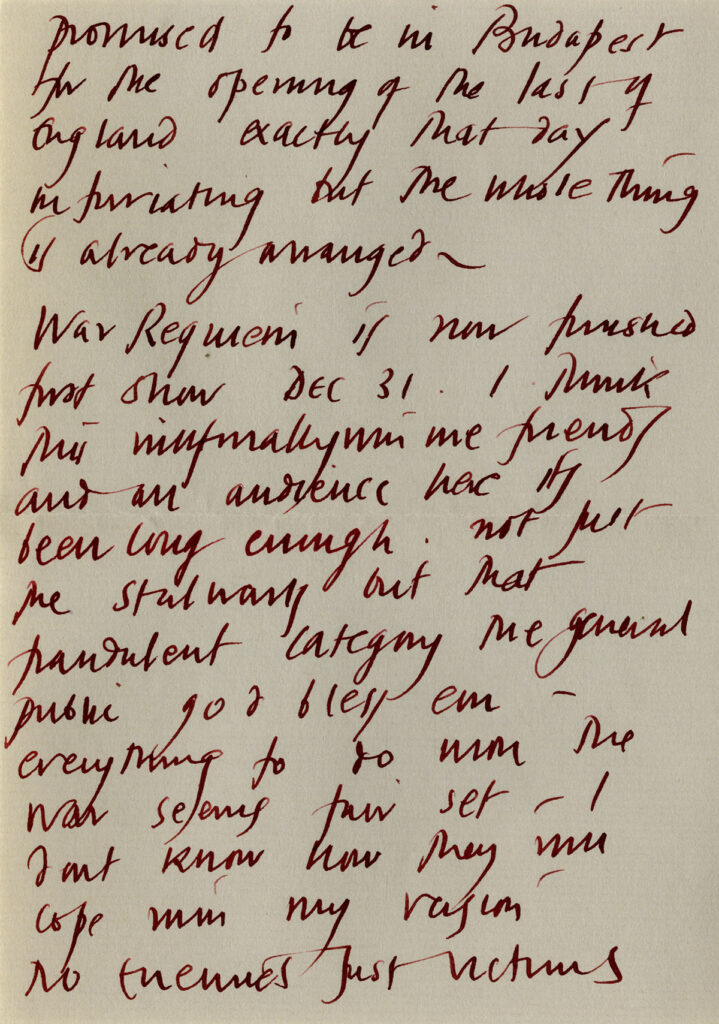 promised to be in Budapest
for the opening of the last of
England exactly that day
infuriating but the whole thing
is already arranged ~
War Requiem is now finished
first show DEC 31 . I think
this will finally win me friends
and an audience here its
been long enough . not just
the stalwarts but that
fraudulent category the general
public god bless em –
everything to do with the
war seems fair set – I
dont know how they will
cope with my version
No Enemies Just Victims